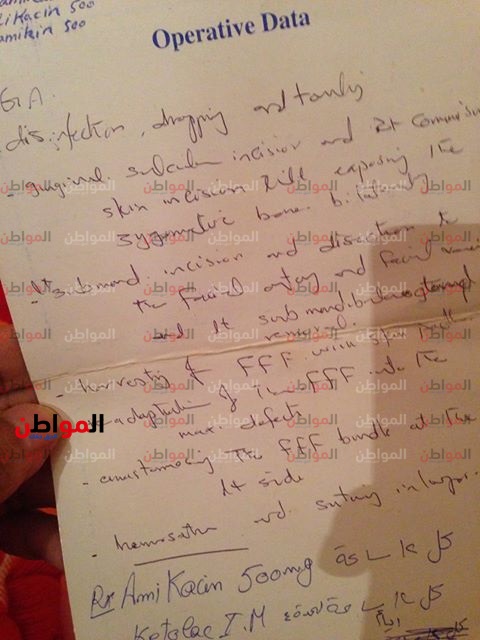 amikin 500
Operative Data
G A
disinfection, drapping and
- gingival sulcular incision and Rt commissure
skin incision till exposing the
zygomatic bone bilaterally
- Lt submand. incision and disection to
the facial artery and facial
and Lt submandibular gland
removal
- harvesting of FFF with skin
- adaptation of the FFF into the
max. defects
- anastamosing the FFF bundle at the
Lt side
- hemostasis and suturing in layer.
Rx Amikacin 500mg كل ١٢ ساعة
Ketolac I.M كل ١٢ ساعة
المواطن